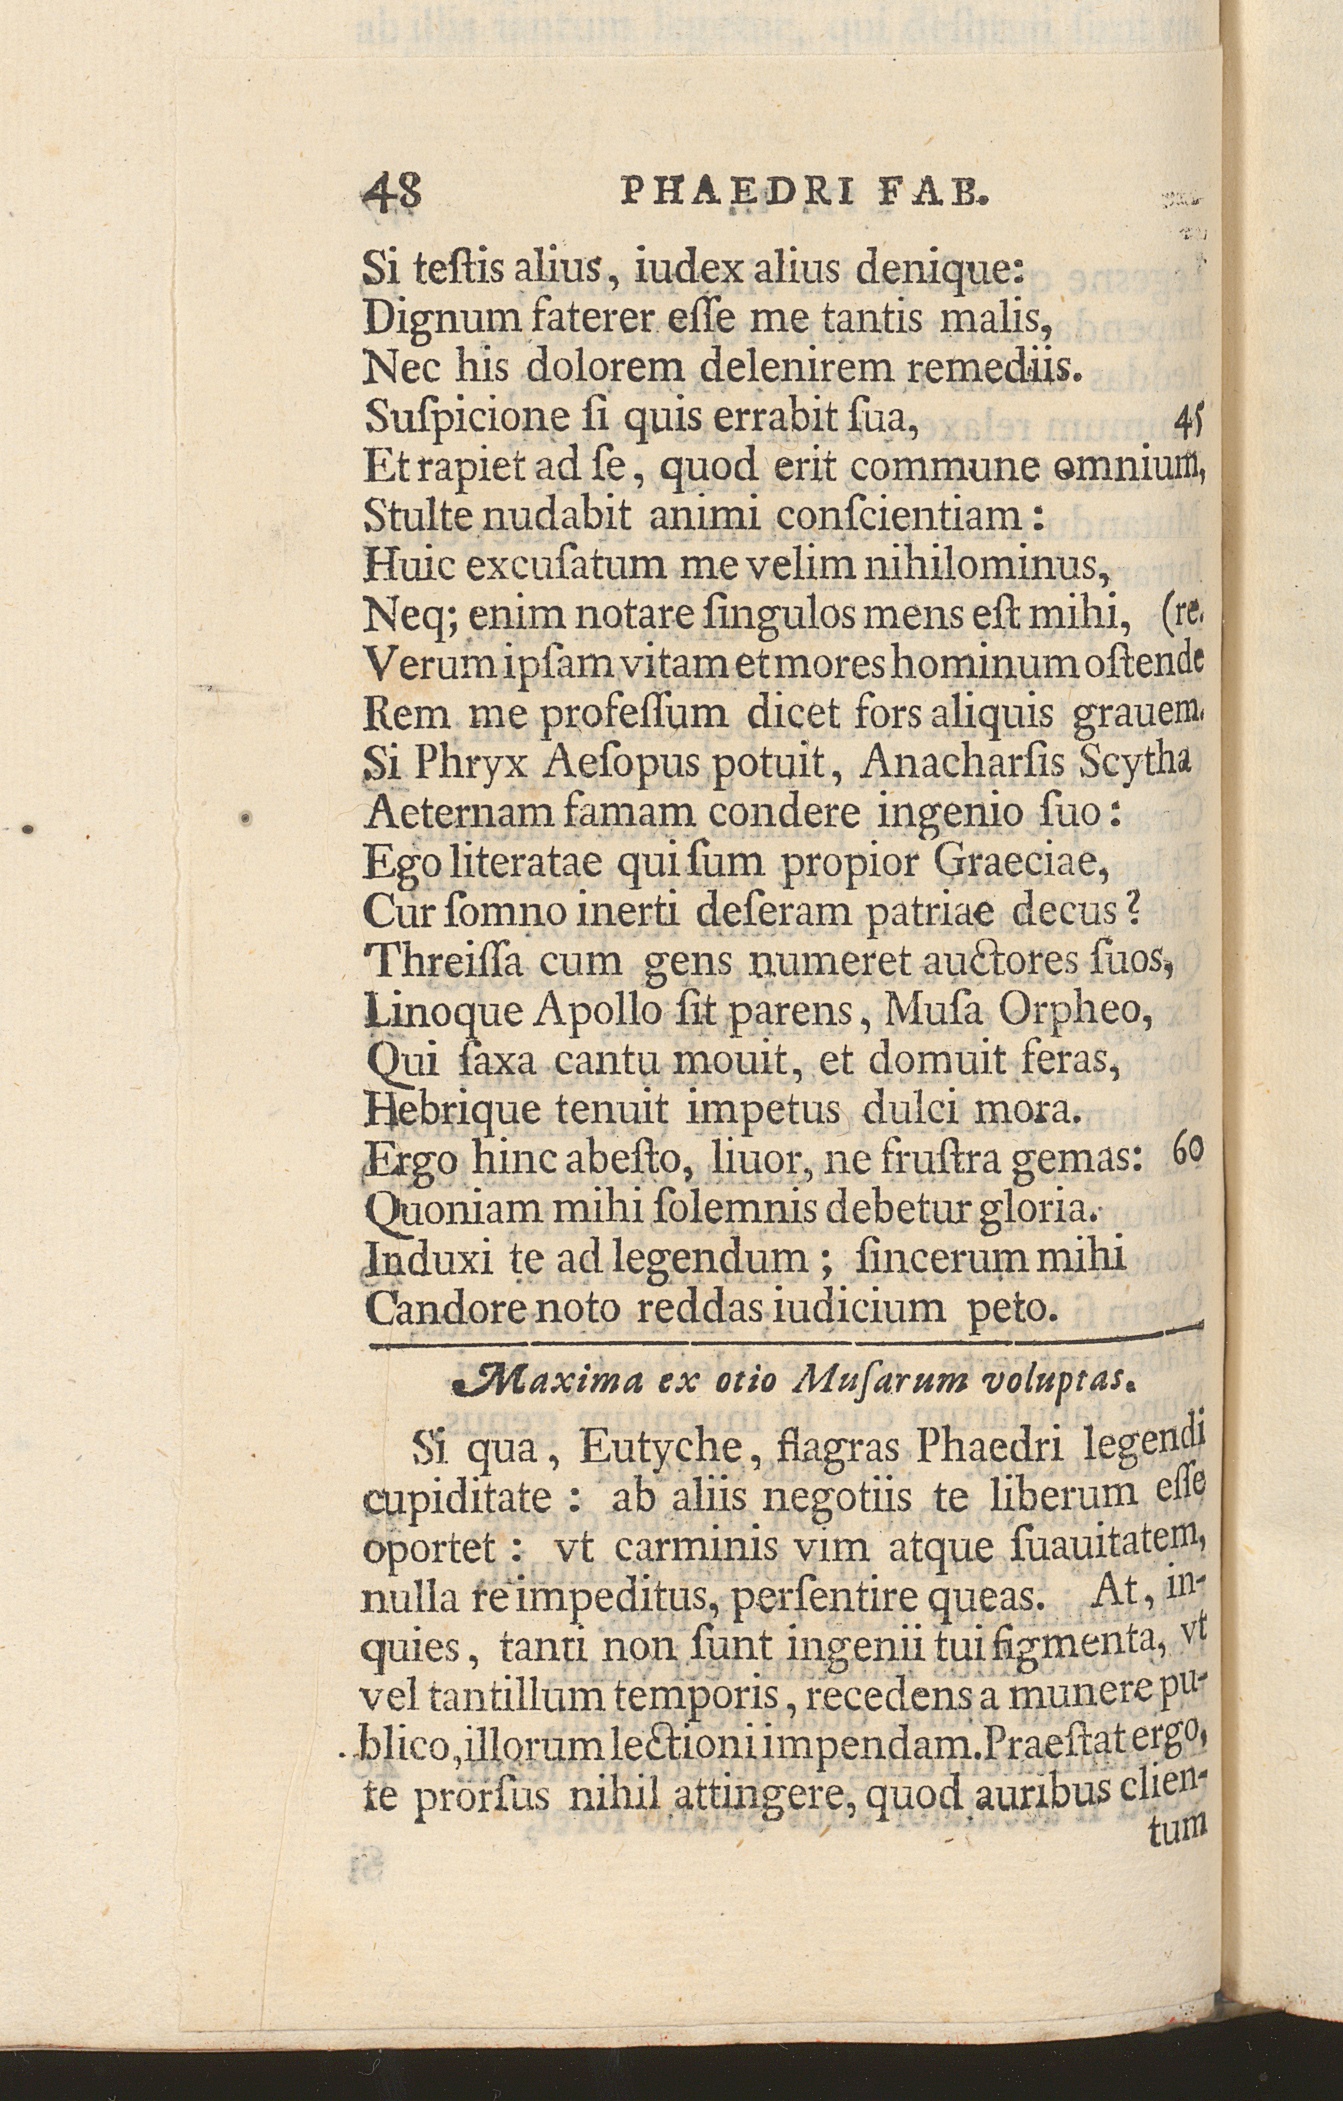 48 PHAEDRI FAB.
Si teſtis alius, iudex alius denique:
Dignum faterer eſſe me tantis malis,
Nec his dolorem delenirem remediis.
Suſpicione ſi quis errabit ſua, 45
Et rapiet ad ſe, quod erit commune omnium,
Stulte nudabit animi conſcientiam:
Huic excuſatum me velim nihilominus,
Neq; enim notare ſingulos mens eſt mihi, (re.
Verum ipſam vitam et mores hominum oſtende
Rem me profeſſum dicet fors aliquis grauem.
Si Phryx Aeſopus potuit, Anacharſis Scytha
Aeternam famam condere ingenio ſuo:
Ego literatae qui ſum propior Graeciae,
Cur ſomno inerti deſeram patriae decus?
Threiſſa cum gens numeret auctores ſuos,
Linoque Apollo ſit parens, Muſa Orpheo,
Qui ſaxa cantu mouit, et domuit feras,
Hebrique tenuit impetus dulci mora.
Ergo hinc abeſto, liuor, ne fruſtra gemas: 60
Quoniam mihi ſolemnis debetur gloria.
Induxi te ad legendum; ſincerum mihi
Candore noto reddas iudicium peto.
Maxima ex otio Muſarum voluptas.
Si qua, Eutyche, flagras Phaedri legendi
cupiditate: ab aliis negotiis te liberum eſſe
oportet: vt carminis vim atque ſuauitatem,
nulla re impeditus, perſentire queas. At, in-
quies, tanti non ſunt ingenii tui figmenta, vt
vel tantillum temporis, recedens a munere pu-
blico, illorum lectioni impendam. Praeſtat ergo,
te prorſus nihil attingere, quod auribus clien-
tum